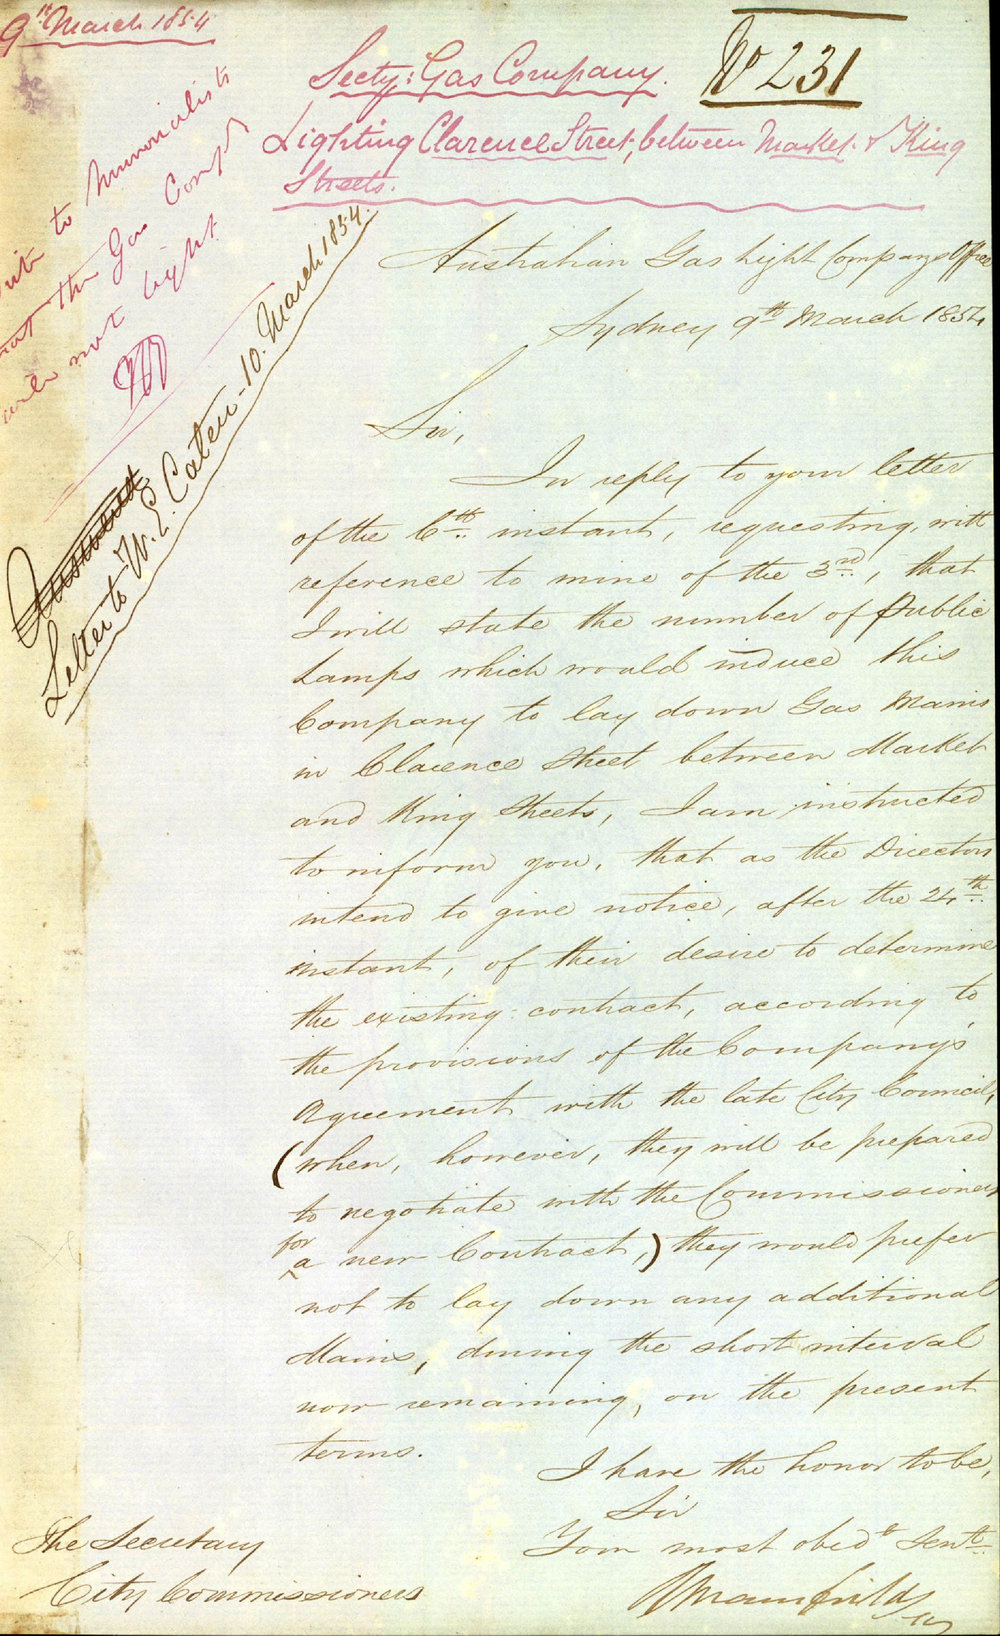 9th March 1854
Secty: Gas Company.
No 231
Lighting Clarence Street, between Market & King
Streets.
to Memorialists
that the Gas Compy
will not light
Letter to W. E. Cater - 10. March 1854.
Australian Gas Light Companys Office
Sydney 9th March 1854
Sir,
In reply to your letter
of the 6th instant, requesting, with
reference to mine of the 3rd, that
I will state the number of Public
Lamps which would induce this
Company to lay down Gas Mains
in Clarence Street between Market
and King Streets, I am instructed
to inform you, that as the Directors
intend to give notice, after the 24th
instant, of their desire to determine
the existing contract, according to
the provisions of the Company's
Agreement with the late City Council,
(when, however, they will be prepared
to negotiate with the Commissioners
for a new Contract,) they would prefer
not to lay down any additional
Mains, during the short interval
now remaining, on the present
terms.
I have the honor to be,
Sir
Your most obedt Servt
The Secretary
City Commissioners